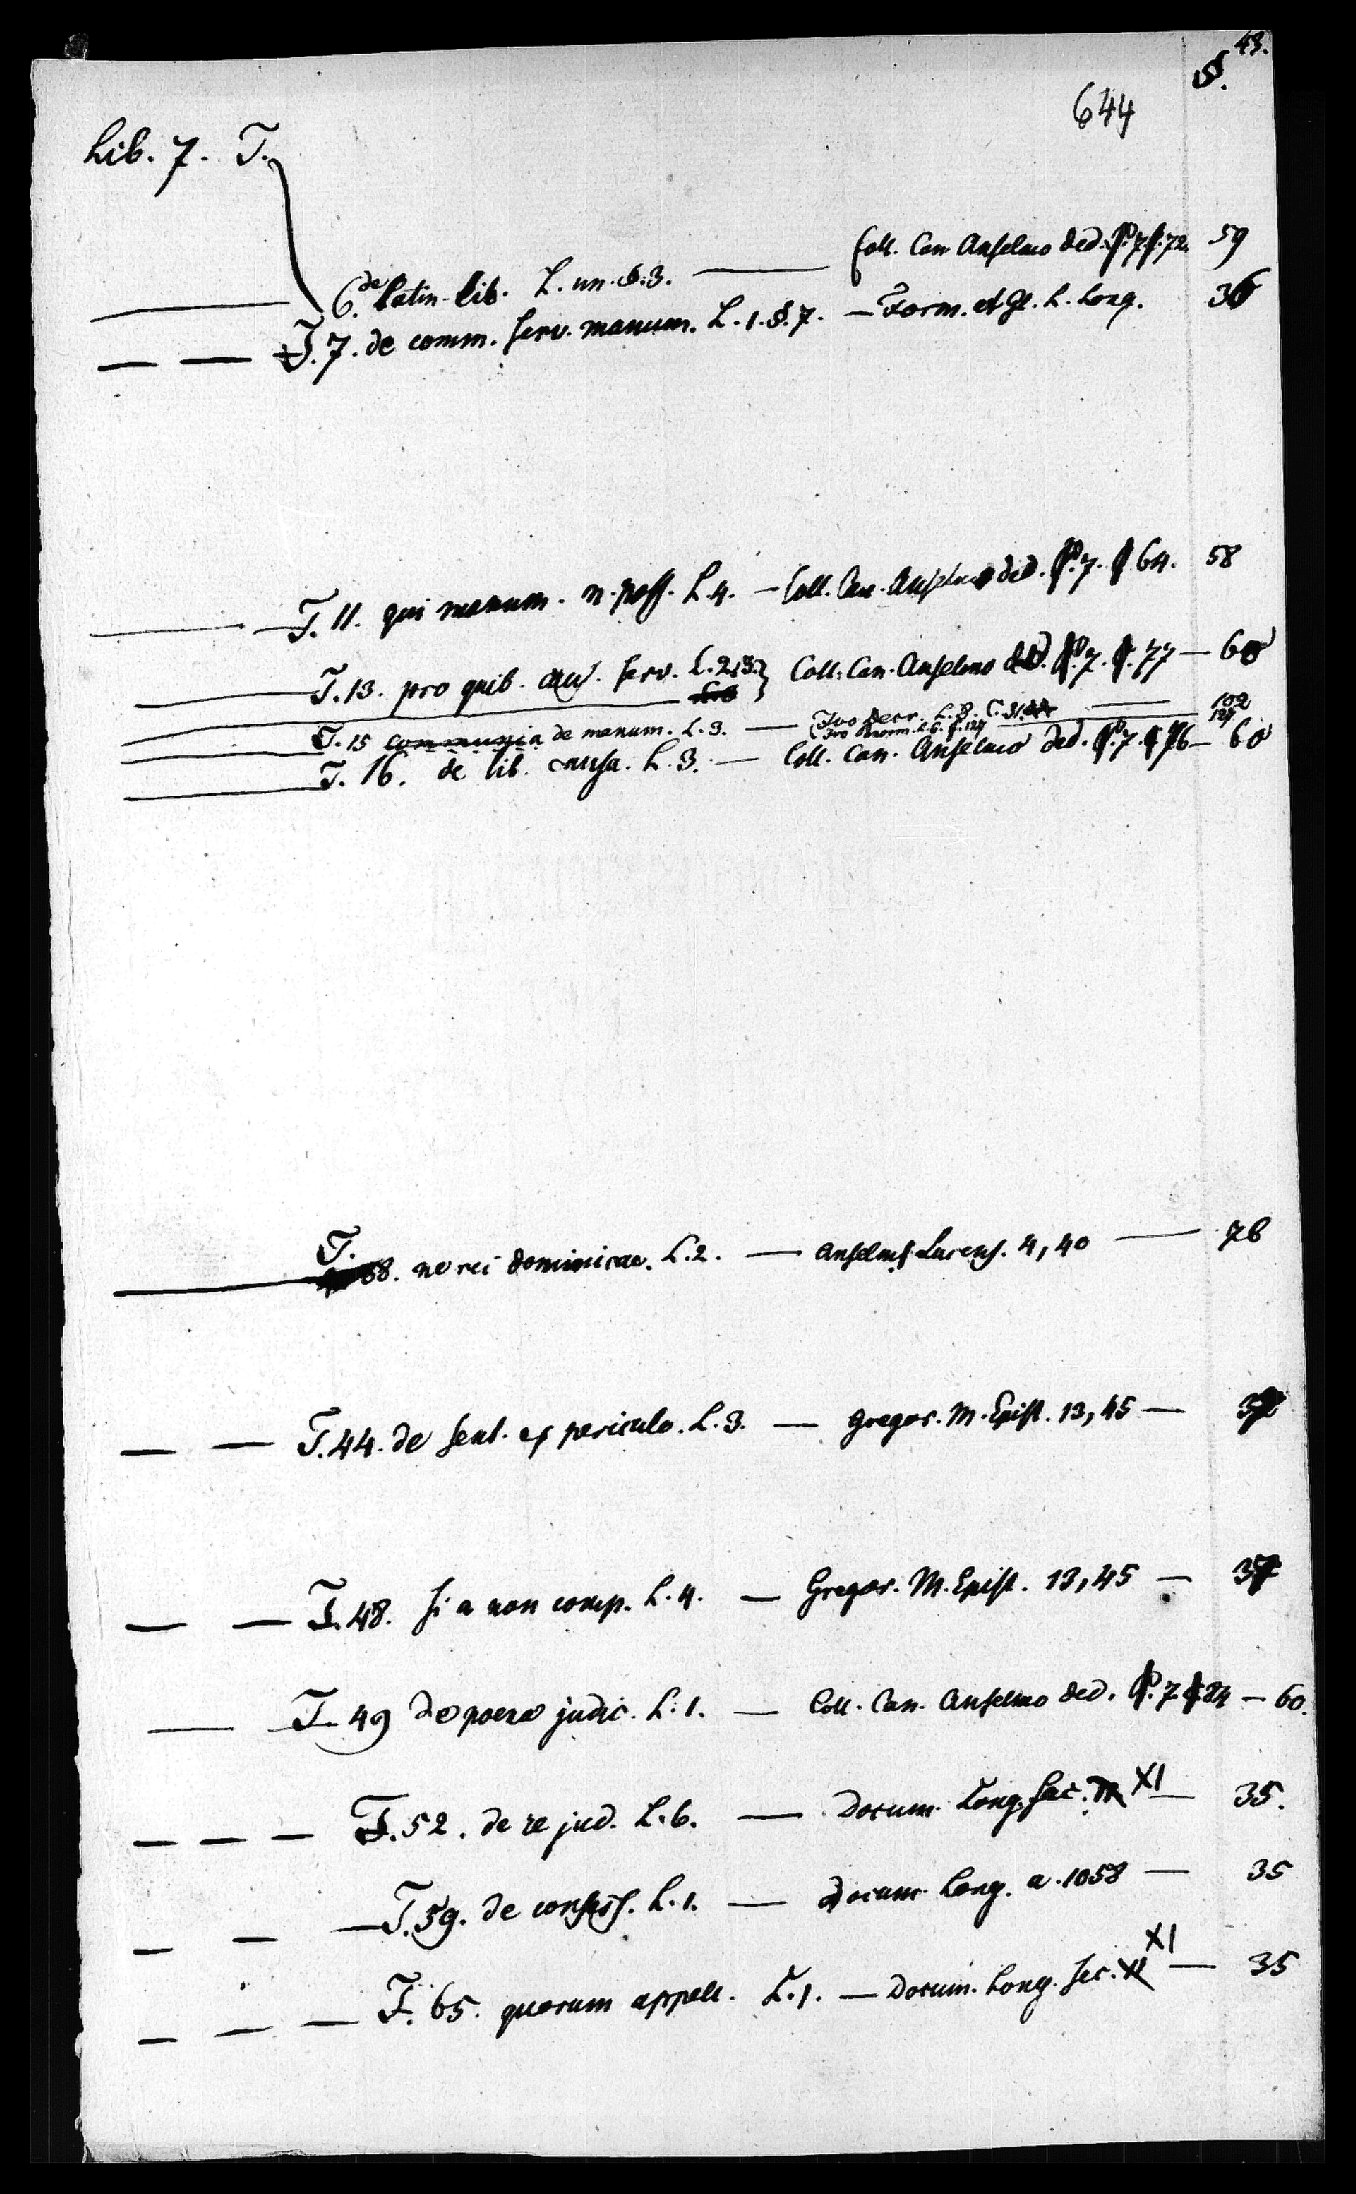 43.
S.
644
Lib. 7. T.
6. de Latin. lib. L. un. §. 3. — Coll. Can Anselmo ded. P. 7. 72. 59
T. 7. de comm. serv. manum. L. 1. §. 7. — Form. et Gl. L. Long. 36
T. 11. qui manum. n. poss. L. 4. — Coll. Can. Anselmo ded. P. 7. 64. 58
T. 13. pro quib. cau. serv. L. 2, 3. } Coll. Can. Anselmo ded. P. 7. 77 — 60
T. 15 communia de manum. L. 3. — Ivo Decr. 102
Ivo Pann. 124
T. 16. de lib. causa. L. 3. — Coll. Can. Anselmo ded. P. 7. 76 — 60
T. 38. ne rei dominicae. L. 2. — Anselms Lucens. 4, 40 — 76
T. 44. de sent. ex periculo. L. 3. — Gregor. M. Epist. 13, 45 —
T. 48. si a non comp. L. 4. — Gregor. M. Epist. 13, 45 —
T. 49 de poena judic. L. 1. — Coll. Can. Anselmo ded. P. 7 84 — 60.
T. 52. de re jud. L. 6. — Docum. Long. sec. XI — 35.
T. 59. de confess. L. 1. — Docum. Long. a. 1058 — 35
T. 65. quorum appell. L. 1. — Docum. Long. sec. XI — 35